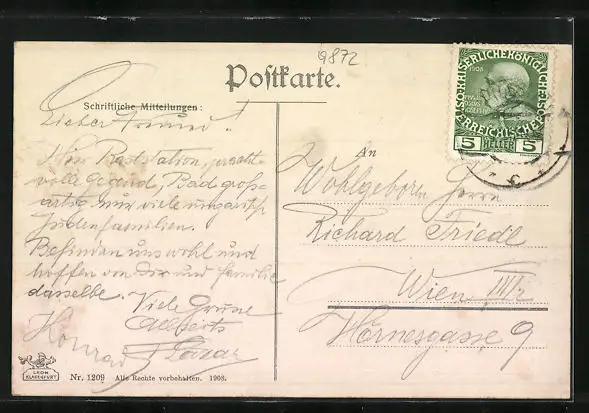 9872
Postkarte.
Schriftliche Mitteilungen:
Lieber Freund!
Hier Raststation, pracht-
volle Gegend, Bad groß-
artig nur viele ungarische
Judenfamilien.
Befinden uns wohl und
hoffen von Dir und Familie
dasselbe. Viele Grüsse
Allseits
Konrad Lazar
KAISERLICHE KÖNIGLICHE
ÖSTERREICHISCHE POST
1908
5 HELLER 5
An
Wohlgeboren Herrn
Richard Friedl
Wien III/2
Hörnesgasse 9
LEON
KLAGENFURT
Nr. 1209 Alle Rechte vorbehalten. 1908.